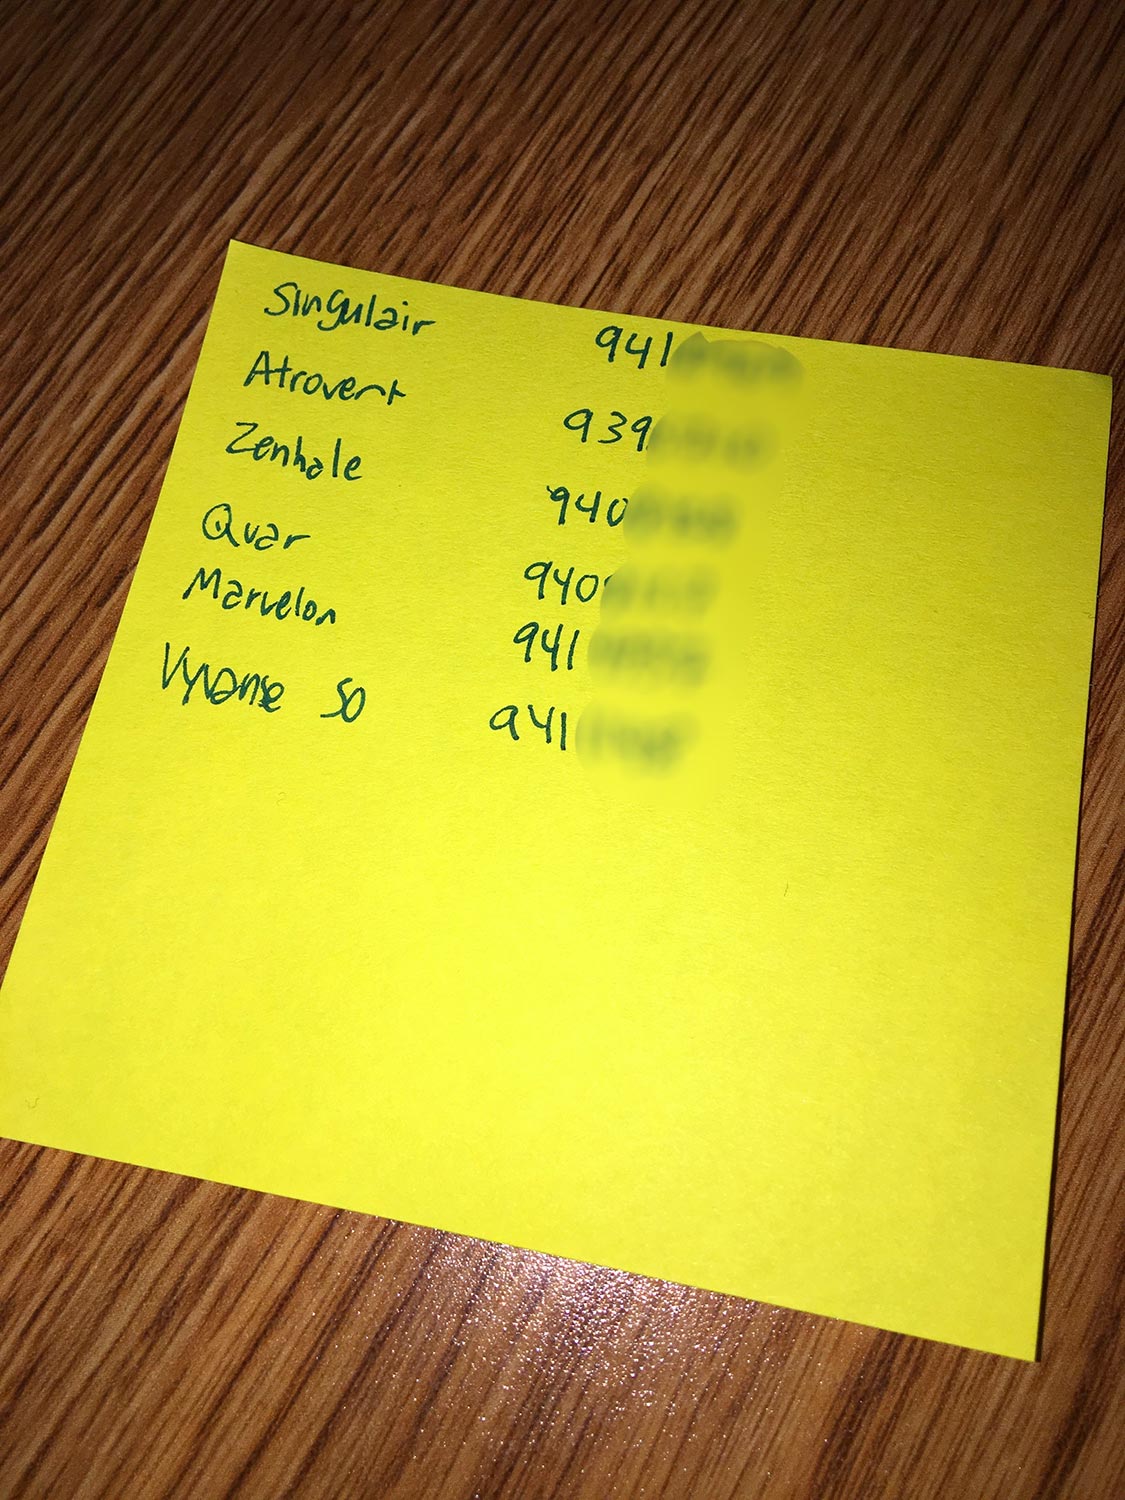 Singulair 941
Atrovent 939
Zenhale 940
Qvar 940
Marvelon 941
Vyvanse 50 941